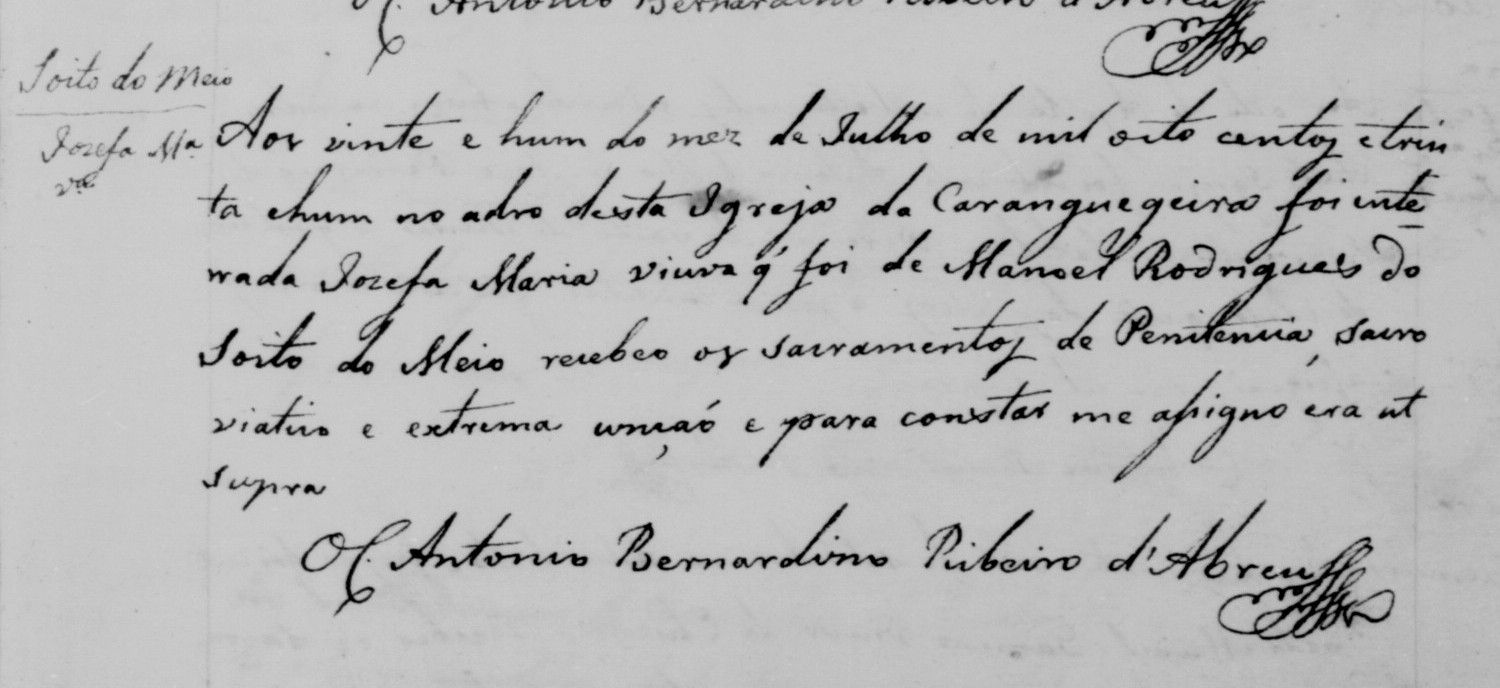 O P. Antonio Bernardino Ribeiro d'Abreu
Soito do Meio
Jozefa Mª
vª
Aos vinte e hum do mez de Julho de mil oito centos e trin
ta e hum no adro desta Igreja da Caranguegeira foi ente
rrada Jozefa Maria viuva q' foi de Manoel Rodrigues do
Soito do Meio recebeo os sacramentos de Penitencia, sacro
viatico e extrema unção e para constar me assigno era ut
supra
O P. Antonio Bernardino Ribeiro d'Abreu